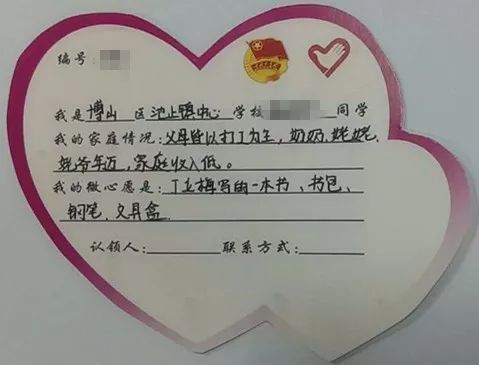 编号:
我是 博山 区 池上镇中心 学校 同学
我的家庭情况: 父母皆以打工为主,奶奶,姥姥,
姥爷年迈,家庭收入低。
我的微心愿是: 丁立梅写的一本书、书包、
钢笔、文具盒
认领人: 联系方式: